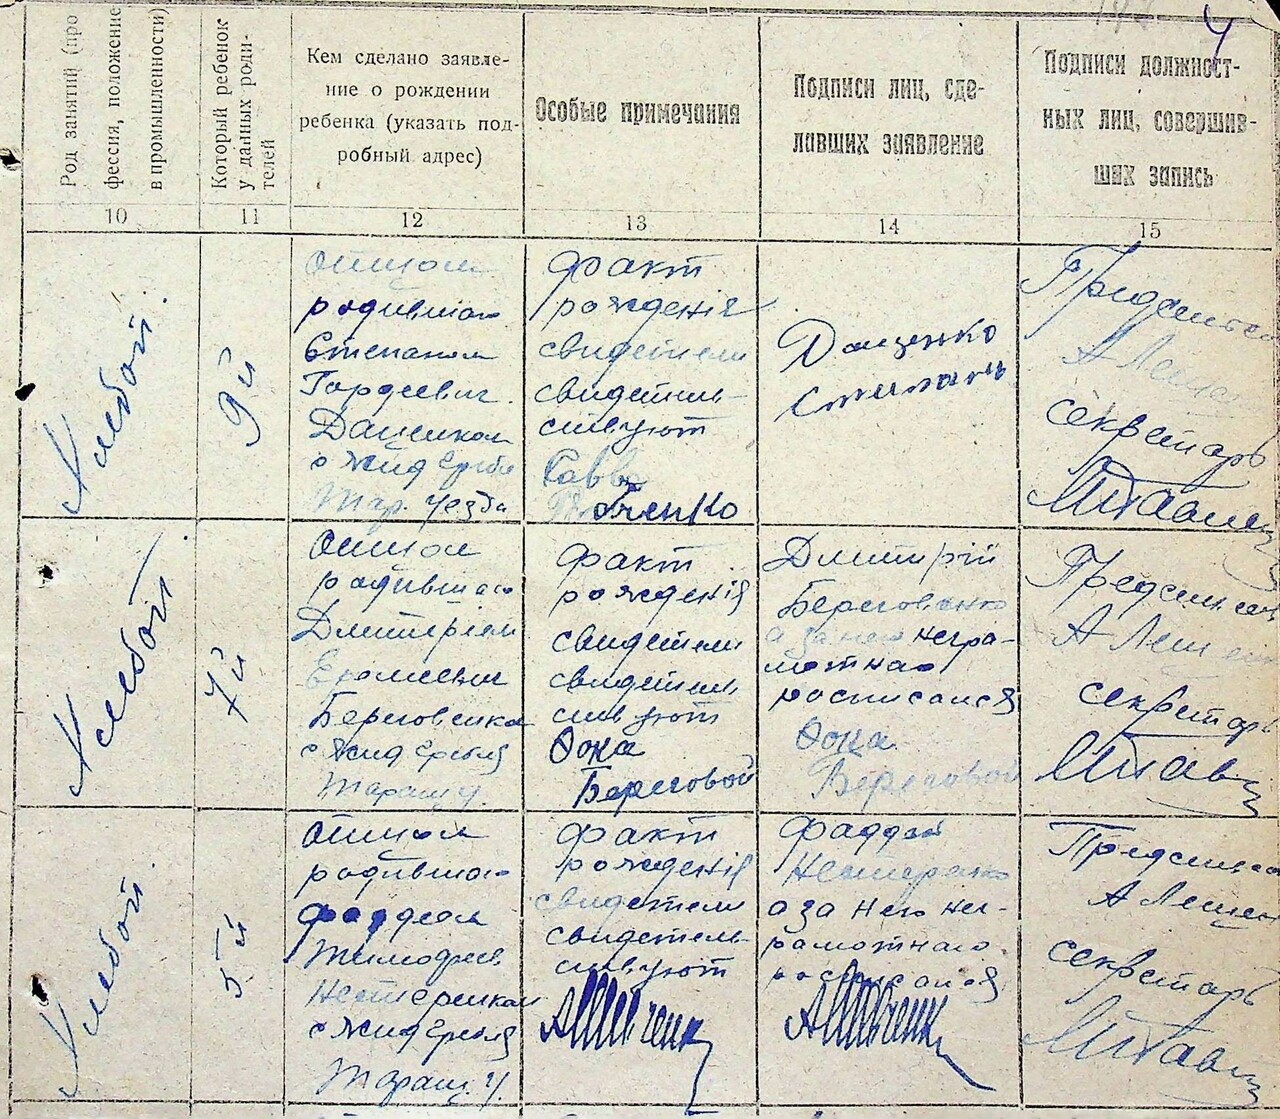 4
Род занятий (про
фессия, положение
в промышленности)
Который ребенок
у данных роди-
телей
Кем сделано заявле-
ние о рождении
ребенка (указать под-
робный адрес)
Особые примечания
Подписи лиц, сде-
лавших заявление
Подписи должност-
ных лиц, совершив-
ших запись
10
11
12
13
14
15
Хлебоп.
9й
отцом
родившаго
Степаном
Гордеевич.
Даценком
Тар. уезда
факт
рожденія
свидетели
свидетель-
ствуют
Савва
Даценко
Степань
Председател
А Лещен
секретарь
Хлебоп.
7й
отцом
родившаго
Дмитріем
Береговенко
Таращ у.
факт
рожденія
свидетели
свидетель
ствуют
Фока
Береговой
Дмитрій
Береговенко
а за него негра-
мотнаго
росписался
Фока
Береговой
Председател
А Лещен
секретарь
Хлебоп.
5й
отцом
родившаго
Фаддеем
Тимофеев
Нестеренком
Таращ. у.
факт
рожденія
свидетели
свидетель-
ствуют
АШевченк
Фаддей
Нестеренко
а за него нег-
рамотнаго
росписался
АШевченк
Председател
А Лещен
секретарь